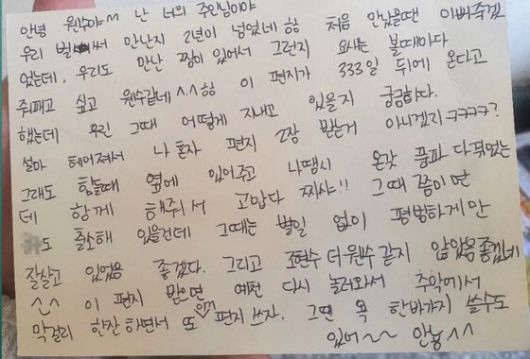 안녕 원수야^^ 난 너의 주인님이야
우리 벌써 만난지 2년이 넘었네 항 처음 만났을땐 이뻐죽겠
었는데. 우리도 만난 짬이 있어서 그런지 요새는 볼때마다
줘패고 싶고 원수같네^^항 이 편지가 333일 뒤에 온다고
했는데 우린 그때 어떻게 지내고 있을지 궁금하다.
설마 헤어져서 나 혼자 편지 2장 받는거 아니겠지ㅋㅋㅋㅋ?
그래도 힘들때 옆에 있어주고 나땜시 온갖 풍파 다겪었는
데 함께 해줘서 고맙다 짜샤!! 그때쯤이면
도 출소해 있을건데 그때는 별일 없이 평범하게만
잘살고 있었음 좋겠다. 그리고 조현수 더 원수 같지 않았음좋겠네
^^ 이 편지 받으면 여전 다시 놀러와서 주막에서
막걸리 한잔 하면서 또 편지 쓰자. 그땐 욕 한바가지 쓸수도
있어~~ 안뇽^^